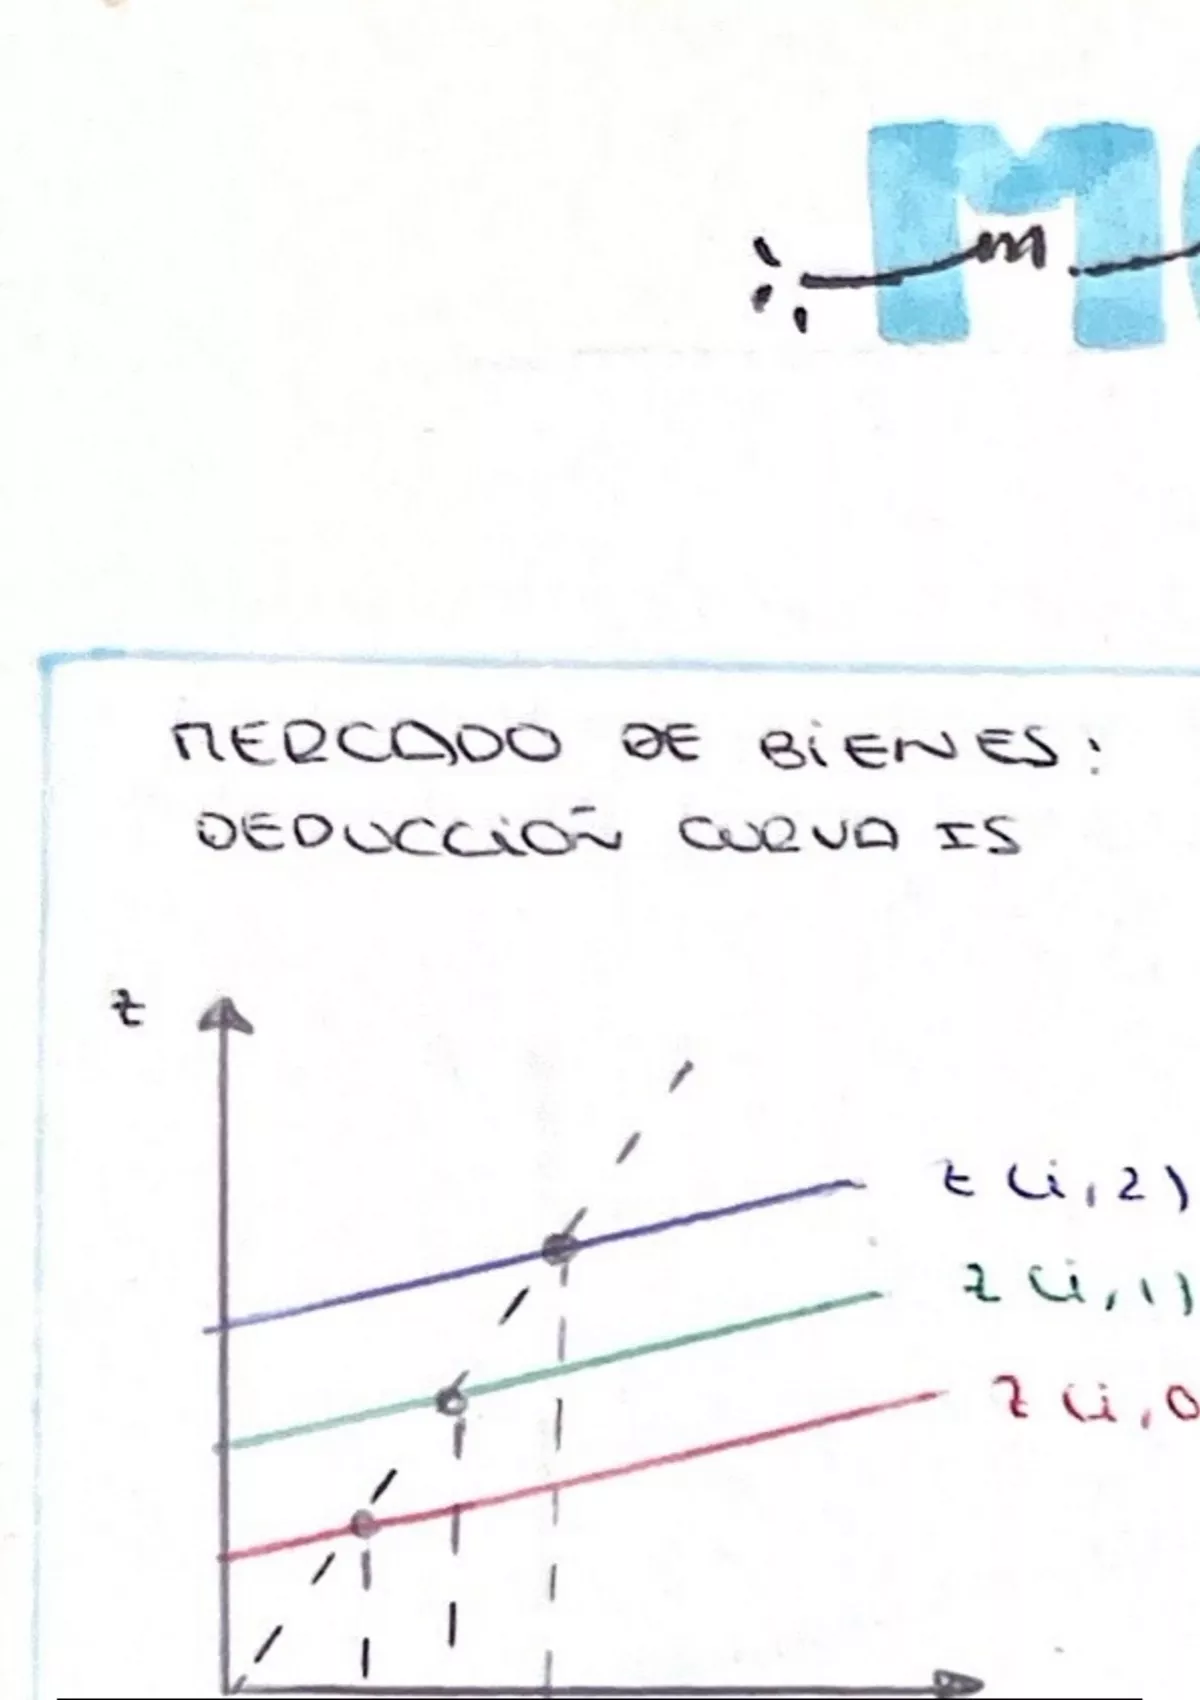 m
MERCADO DE BIENES:
DEDUCCIÓN CURVA IS
z
z (i, 2)
z (i, 1)
z (i, 0